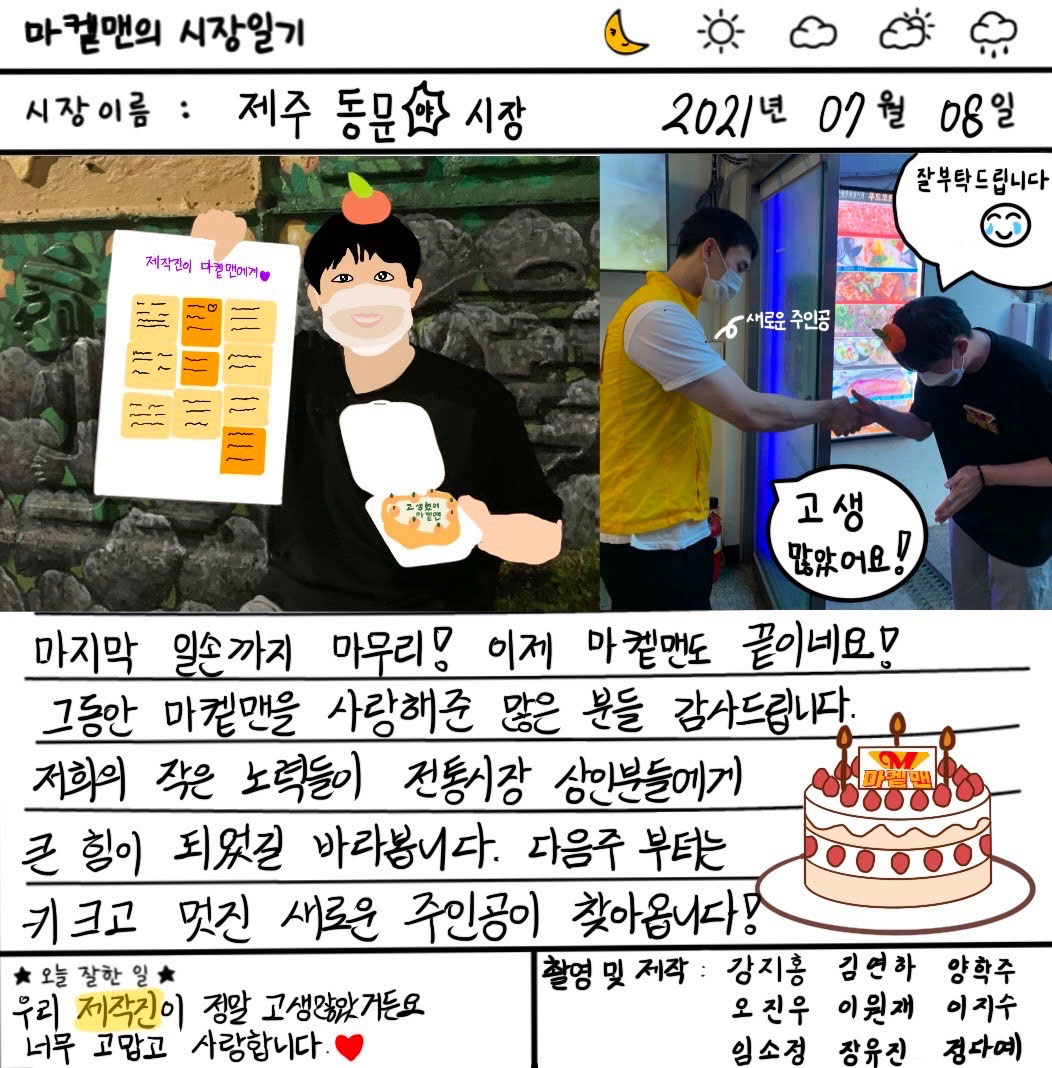 마켙맨의 시장일기
시장이름 : 제주 동문 야 시장
2021년 07월 08일
제작진이 마켙맨에게♥
고생했어
마켙맨
잘부탁드립니다
새로운 주인공
고생
많았어요!
마지막 일손까지 마무리! 이제 마켙맨도 끝이네요!
그동안 마켙맨을 사랑해준 많은 분들 감사드립니다.
저희의 작은 노력들이 전통시장 상인분들에게
큰 힘이 되었길 바라봅니다. 다음주 부터는
키 크고 멋진 새로운 주인공이 찾아옵니다!
M
마켙맨
★ 오늘 잘한 일 ★
우리 제작진이 정말 고생많았거든요
너무 고맙고 사랑합니다.♥
촬영 및 제작 : 강지홍 김연하 양학주
오진우 이원재 이지수
임소정 장유진 정다예